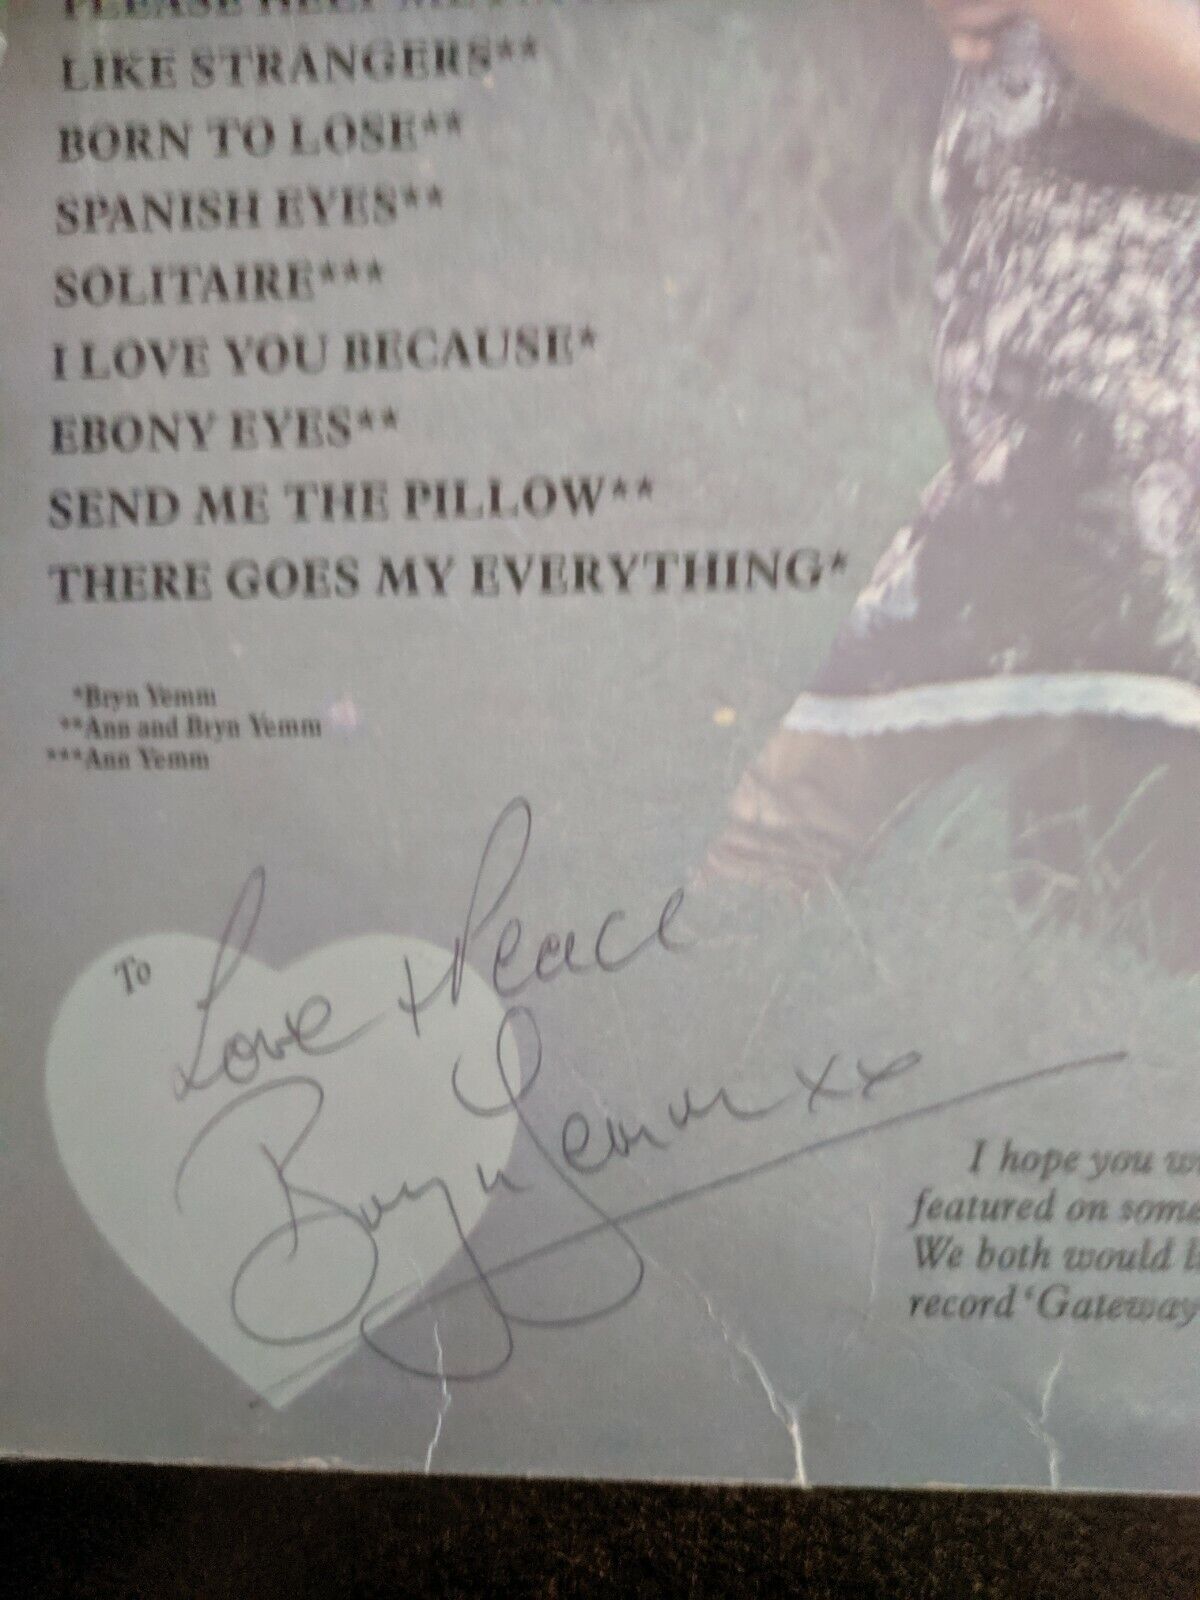 PLEASE HELP ME
LIKE STRANGERS**
BORN TO LOSE**
SPANISH EYES**
SOLITAIRE***
I LOVE YOU BECAUSE*
EBONY EYES**
SEND ME THE PILLOW**
THERE GOES MY EVERYTHING*
*Bryn Yemm
**Ann and Bryn Yemm
***Ann Yemm
To
Love + Peace
Bryn Yemm xx
I hope you
featured on some
We both would
record 'Gateway